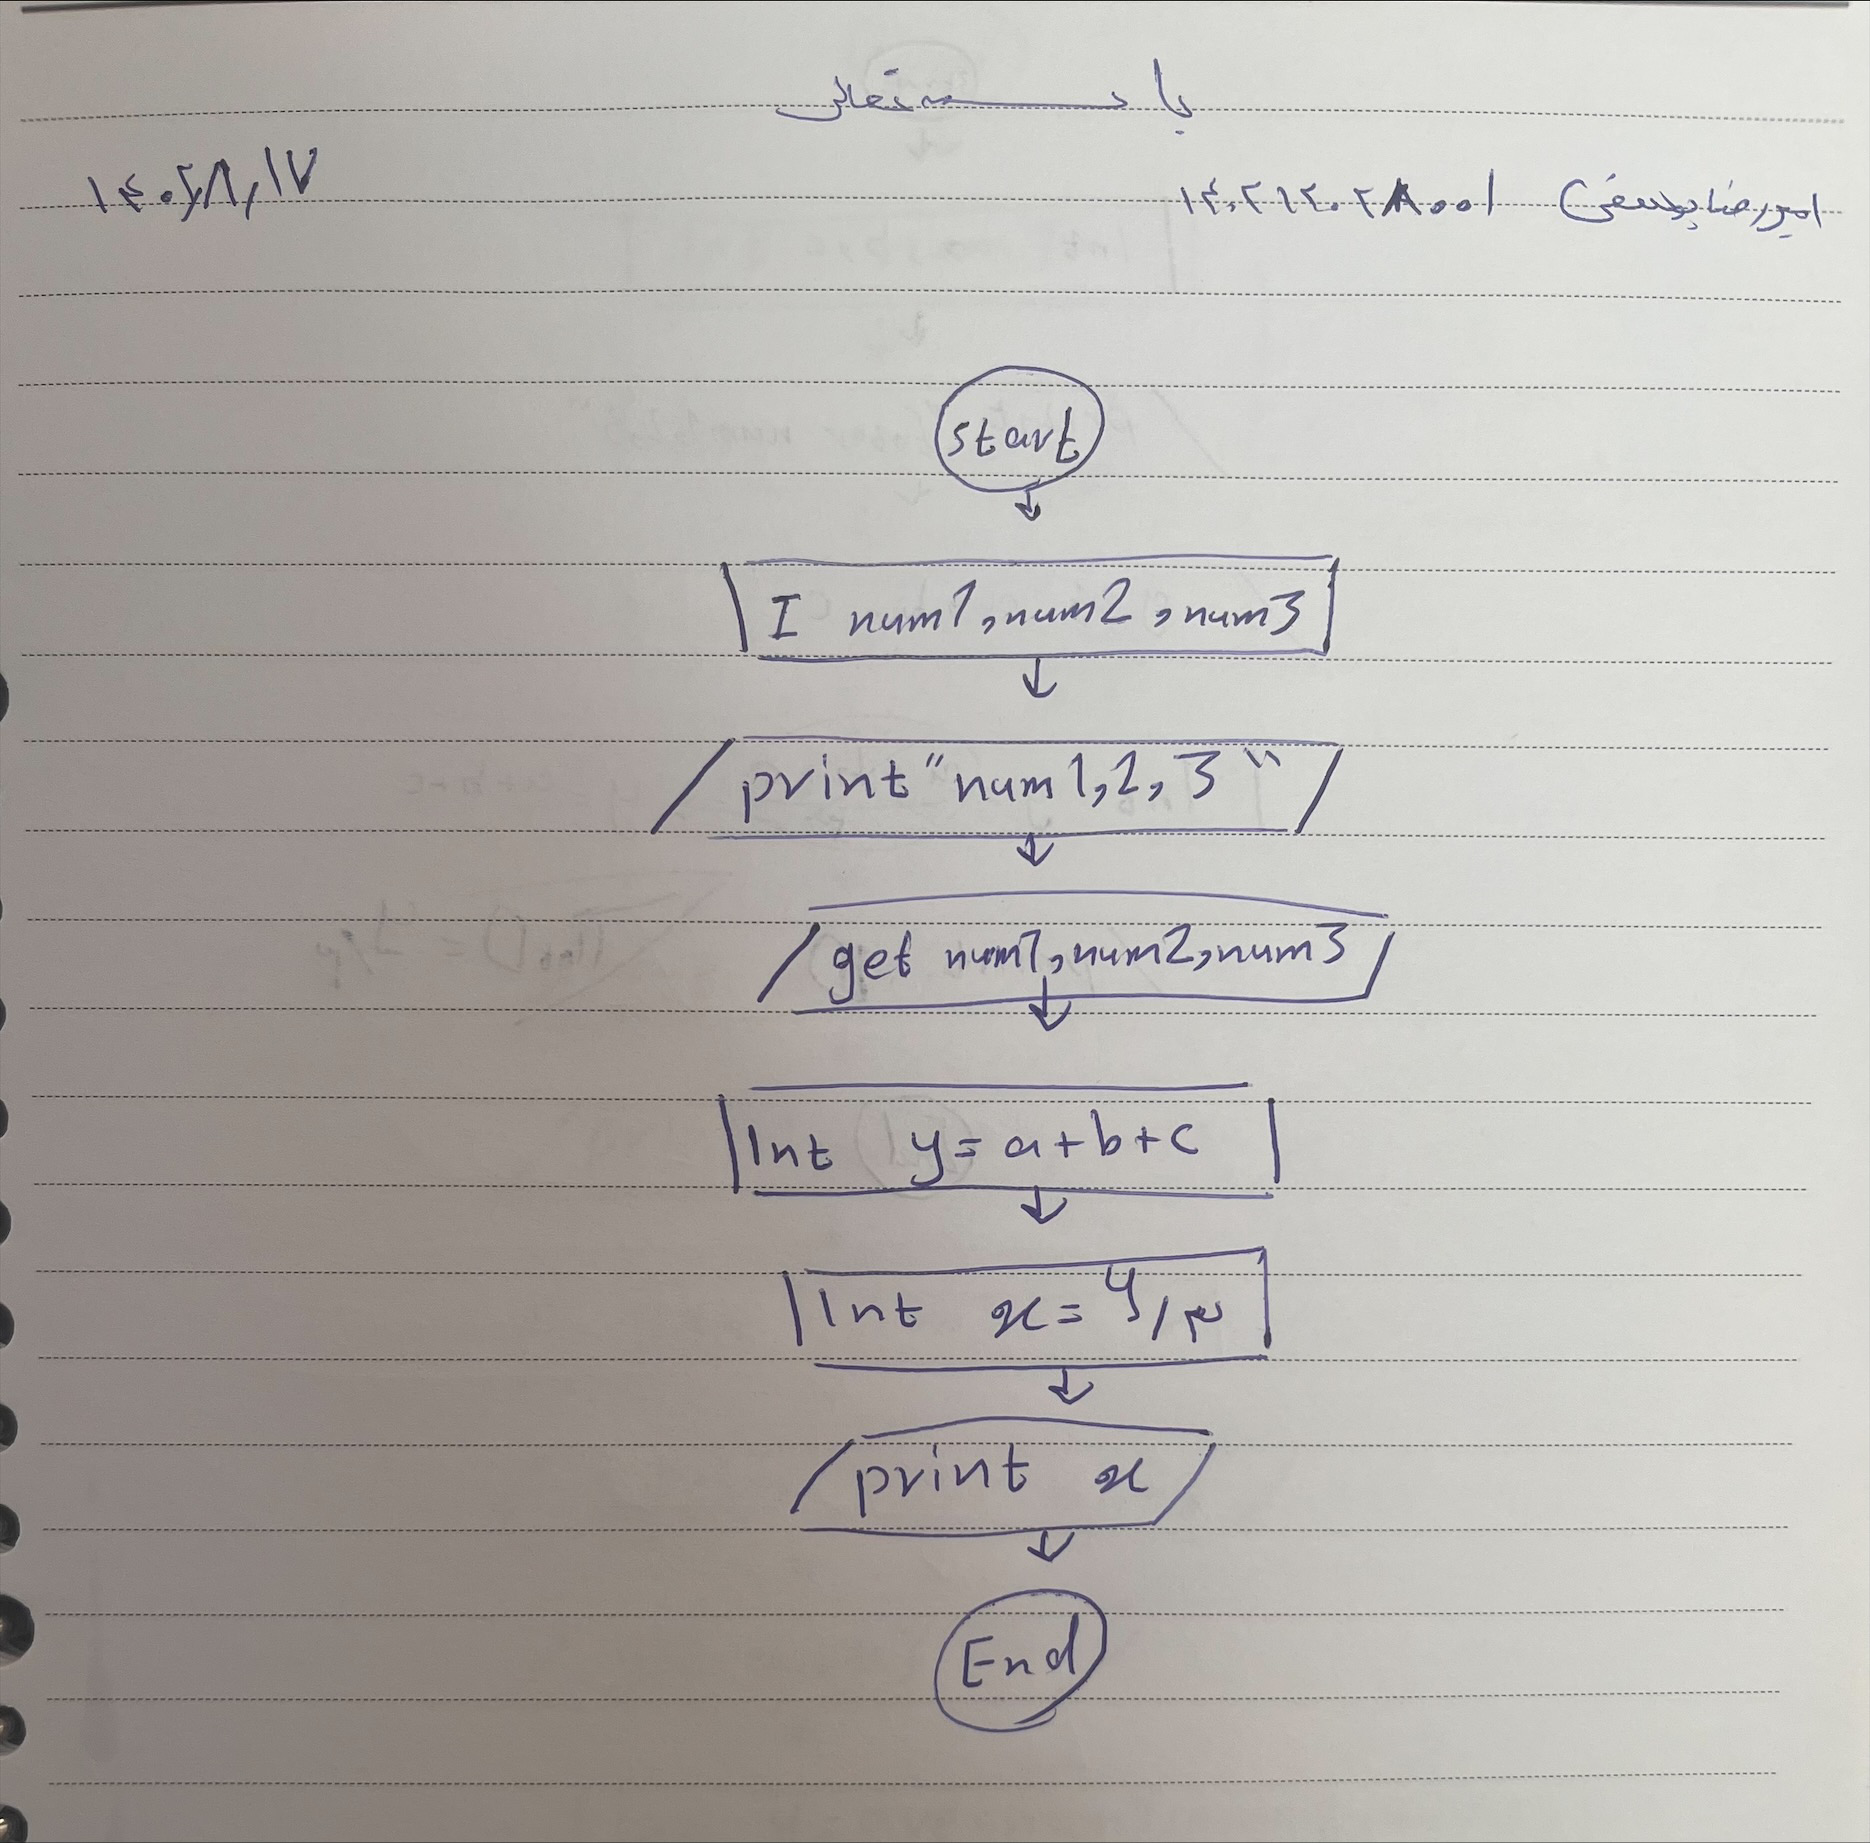 باسمه تعالی
امیررضا یوسفی ۱۴۰۲۱۲۰۲۸۰۰۱
۱۴۰۲/۸/۱۷
start
I num1, num2, num3
print "num1,2,3"
get num1, num2, num3
Int y = a+b+c
Int x = y/۳
print x
End